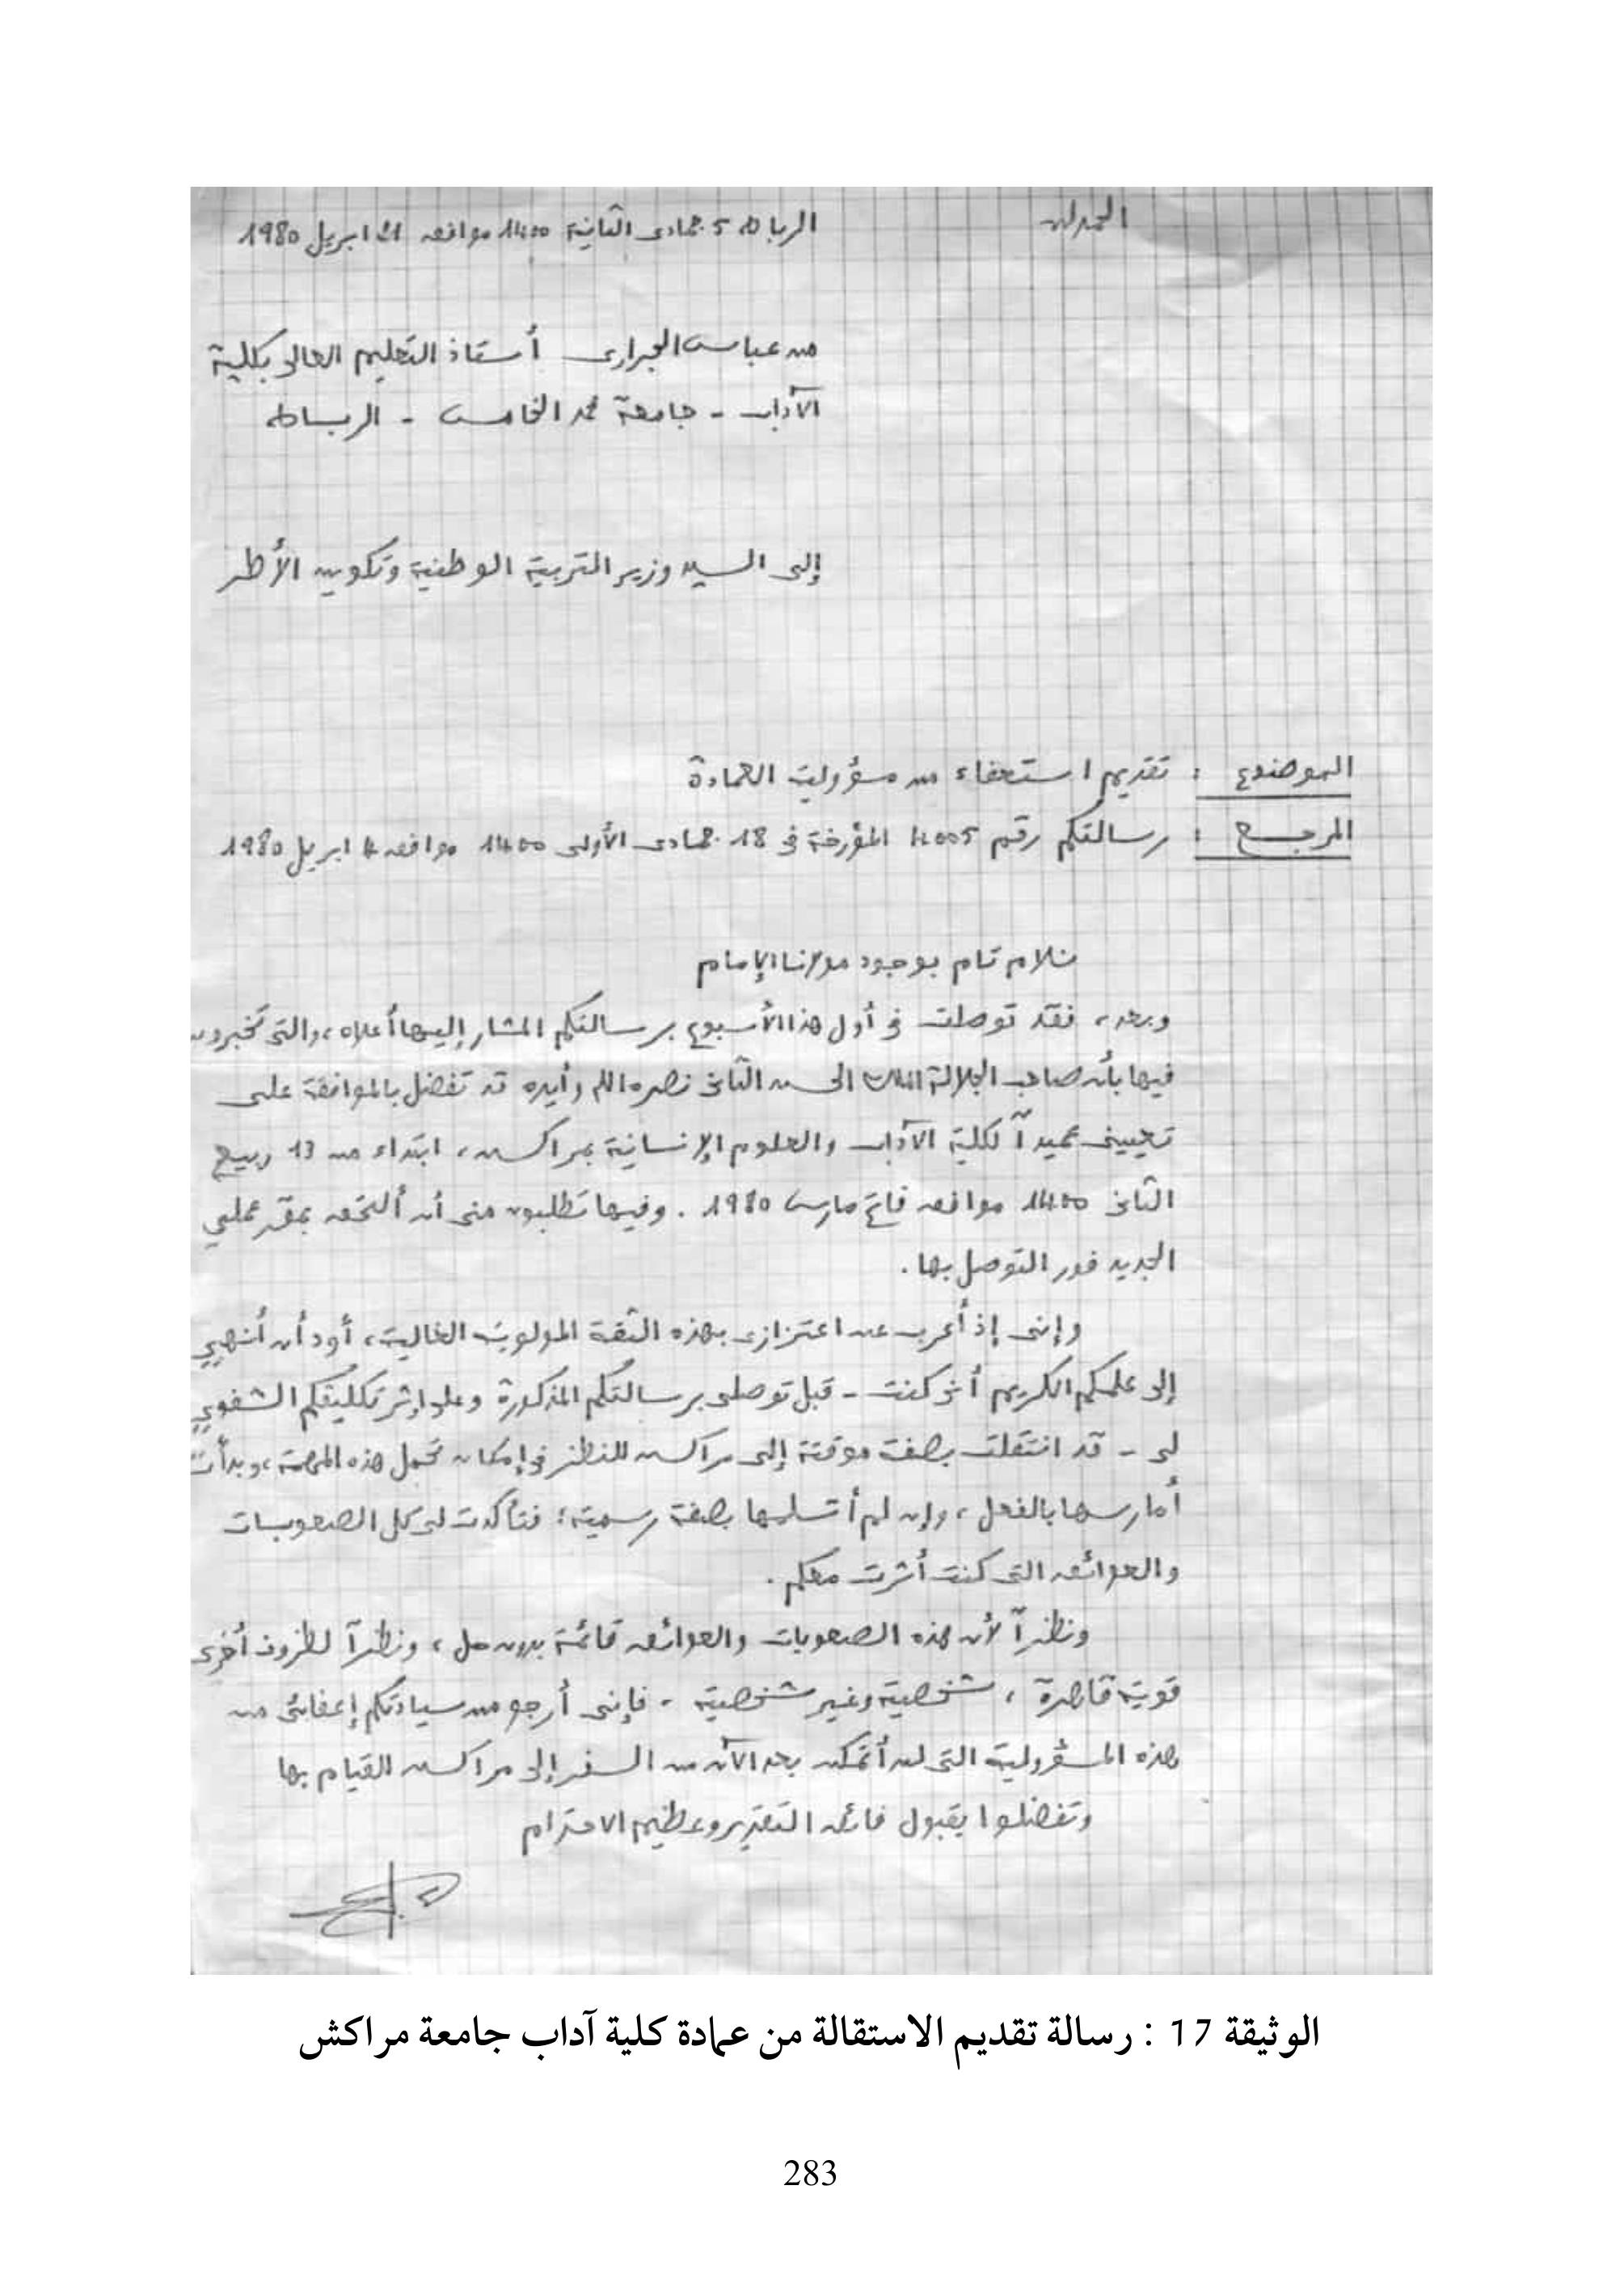 الحمد لله
الرباط 5 جمادى الثانية 1400 موافق 21 ابريل 1980
من عباس الجراري أستاذ التعليم العالي بكلية
الآداب - جامعة محمد الخامس - الرباط
إلى السيد وزير التربية الوطنية وتكوين الأطر
الموضوع : تقديم استعفاء من مسؤولية العمادة
المرجع : رسالتكم رقم 4005 المؤرخة في 18 جمادى الأولى 1400 موافق 4 ابريل 1980
سلام تام بوجود مولانا الإمام
وبعد، فقد توصلت في أول هذا الأسبوع برسالتكم المشار إليها أعلاه، والتي تخبرون
فيها بأن صاحب الجلالة الملك الحسن الثاني نصره الله وأيده قد تفضل بالموافقة على
تعييني عميداً لكلية الآداب والعلوم الإنسانية بمراكش، ابتداء من 13 ربيع
الثاني 1400 موافق فاتح مارس 1980 . وفيها تطلبون مني أن ألتحق بمقر عملي
الجديد فور التوصل بها .
وإنني إذ أعرب عن اعتزازي بهذه الثقة المولوية الغالية، أود أن أنهي
إلى علمكم الكريم أني كنت - قبل توصلي برسالتكم المذكورة وعلى إثر تكليفكم الشفوي
لي - قد انتقلت بصفة موقتة إلى مراكش للنظر في إمكان تحمل هذه المهمة، وبدأت
أمارسها بالفعل، وإن لم أتسلمها بصفة رسمية؛ فتأكدت لي كل الصعوبات
والعوائق التي كنت أثرت معكم .
ونظراً لأن هذه الصعوبات والعوائق قائمة بدون حل، ونظراً لظروف أخرى
قوية قاهرة، شخصية وغير شخصية - فإنني أرجو من سيادتكم إعفائي من
هذه المسؤولية التي لن أتمكن بعد الآن من السفر إلى مراكش للقيام بها
وتفضلوا بقبول فائق التقدير وعظيم الاحترام
الوثيقة 17 : رسالة تقديم الاستقالة من عمادة كلية آداب جامعة مراكش
283